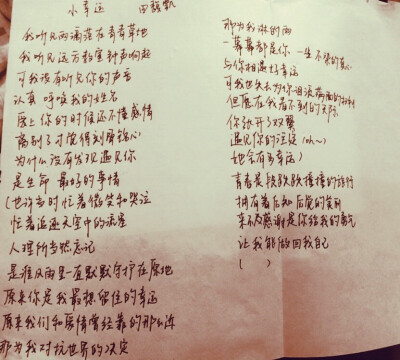 小幸运 田馥甄
我听见雨滴落在青青草地
我听见远方教室钟声响起
可我没有听见你的声音
认真 呼唤我的姓名
爱上你的时候还不懂感情
离别了才觉得刻骨铭心
为什么没有发现遇见你
是生命 最好的事情
(也许当时忙着微笑和哭泣
忙着追逐天空中的流星
人理所当然忘记
是谁风雨里一直默默守护在原地
原来你是我最想留住的幸运
原来我们和爱情曾经靠的那么近
那为我对抗世界的决定
那为我淋的雨
一幕幕都是你 一尘不染的真心
与你相遇好幸运
可我也失去为你泪流满面的权利
但愿在我看不到的天际
你张开了双翼
遇见你的注定 (oh~)
她会有多幸运)
青春是段跌跌撞撞的旅行
拥有着后知后觉的美丽
来不及感谢是你给我的勇气
让我能做回我自己
( )